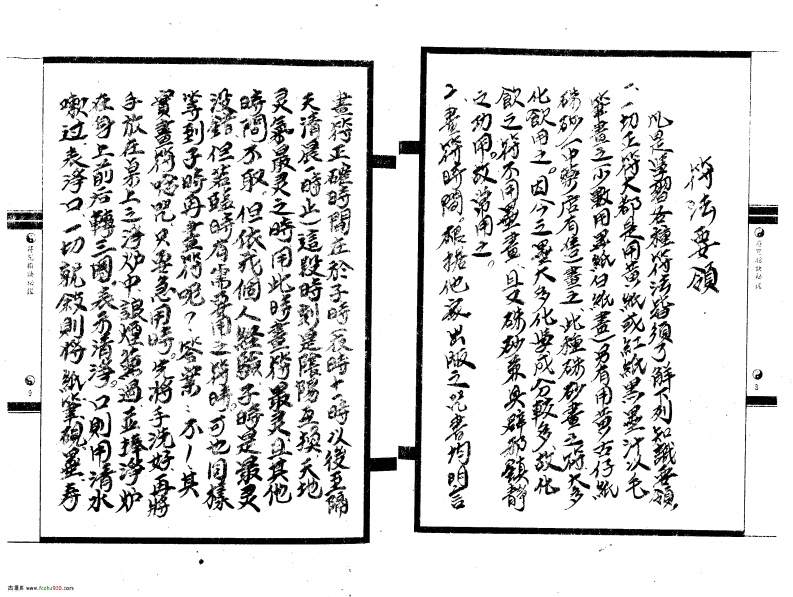 符法要領
凡是學習各種符法皆須了解下列知識要領,
一、一切正符大都是用黃紙或紅紙黑墨汁以毛
筆畫之少數用黑紙(白紙畫)另有用黃古仔紙
硃砂(中藥店有售)畫之、此種硃砂畫之符大多
化飲用之。因今之墨大多化學成分較多故化
飲之符不用墨畫、且又硃砂兼具辟邪鎮靜
之功用。故常用之。
2、畫符時間。根據他家出版之咒書均明言
書符正確時間在於子時(夜時十一時以後至隔
天清晨一時止)這段時刻是陰陽互換、天地
灵氣最灵之時用此時畫符最灵、且其他
時間不取、但依我個人經驗、子時是最灵
沒錯但若臨時有需要用之符時。可也同樣
等到子時再畫符呢?答案:不!其
實畫符唸咒只要急用時。先將手洗好、再將
手放在桌上之淨炉中讓煙薰過、並捧淨炉
在身上前后轉三圈、表示清淨。口則用清水
嗽过、表淨口、一切就敘則將紙筆硯墨、壽
符咒指訣秘鑑
8
符咒指訣秘鑑
9
古書庫 www.fozhu920.com